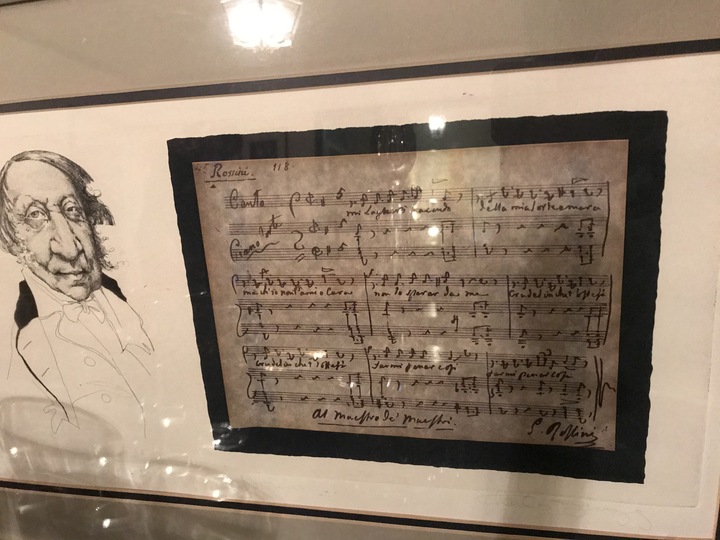 Rossini. 118.
Canto
mi lagnerò tacendo della mia sorte amara
Piano forte
ma ch'io non t'ami o Cara non lo sperar da me Crudel in che t'offesi
Crudel in che t'offesi farmi penar così farmi penar così
al Maestro de' Maestri.
G. Rossini